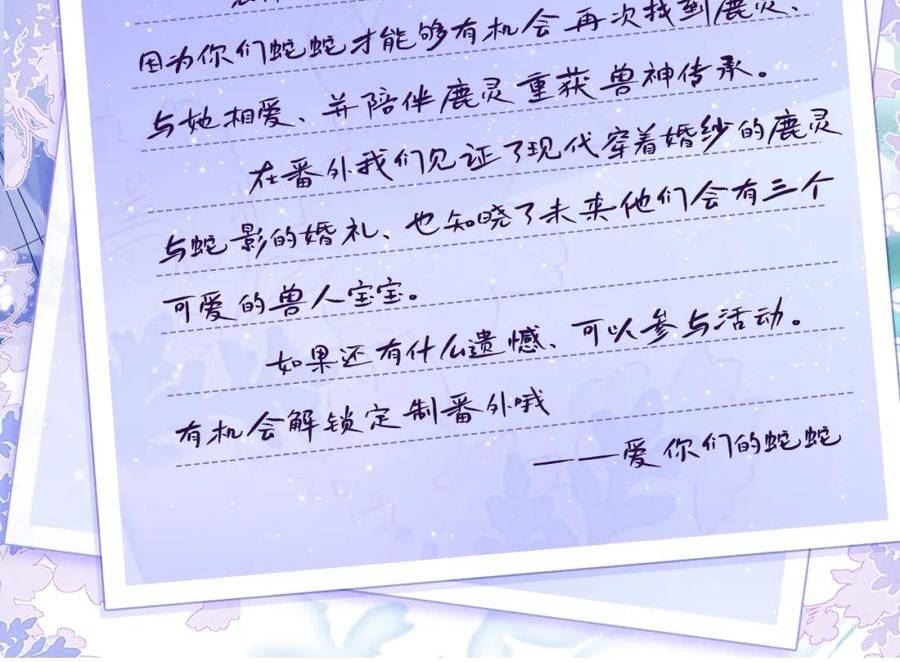 因为你们蛇蛇才能够有机会再次找到鹿灵、
与她相爱、并陪伴鹿灵重获兽神传承。
在番外我们见证了现代穿着婚纱的鹿灵
与蛇影的婚礼、也知晓了未来他们会有三个
可爱的兽人宝宝。
如果还有什么遗憾、可以参与活动。
有机会解锁定制番外哦
———爱你们的蛇蛇